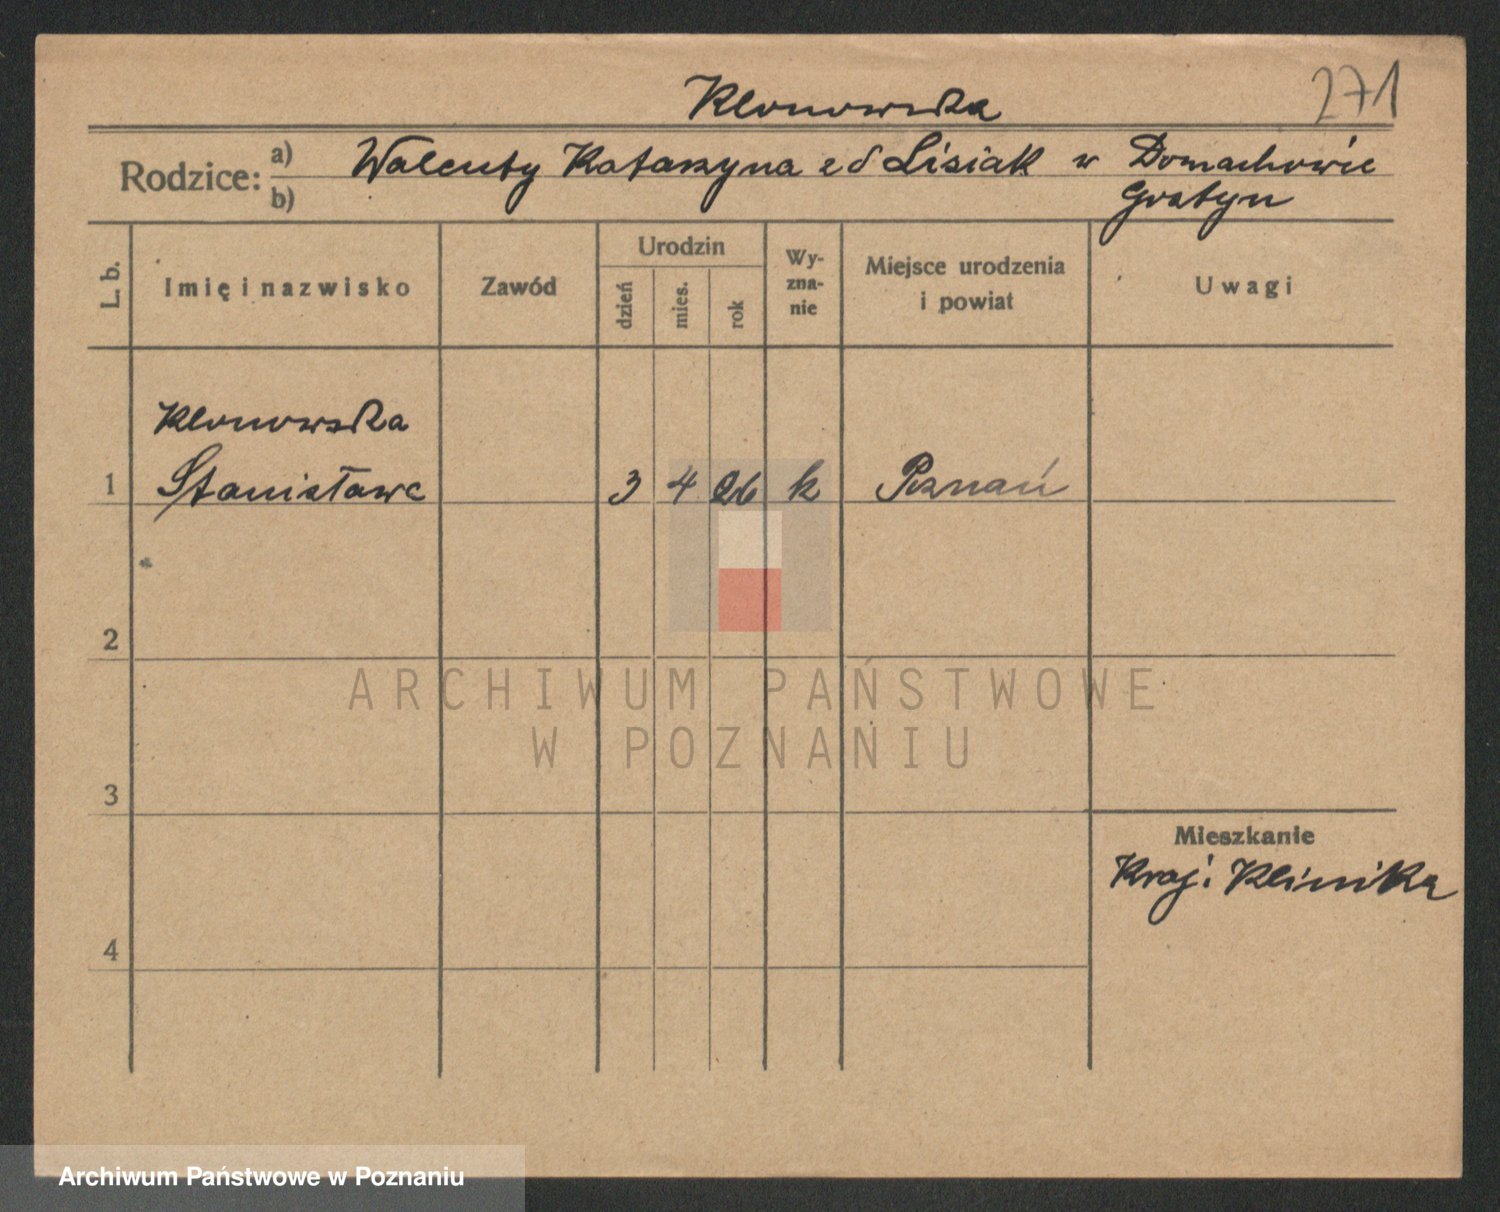 Klonowska
271
Rodzice: a) Walenty Katarzyna z d Lisiak w Domachowie
b) Gostyn
L. b.
Imię i nazwisko
Zawód
Urodzin
dzień
mies.
rok
Wy-
zna-
nie
Miejsce urodzenia
i powiat
Uwagi
Klonowska
1 Stanisława 3 4 26 k Poznań
2
3
4
Mieszkanie
Kraj. Klinika
ARCHIWUM PAŃSTWOWE
W POZNANIU
Archiwum Państwowe w Poznaniu